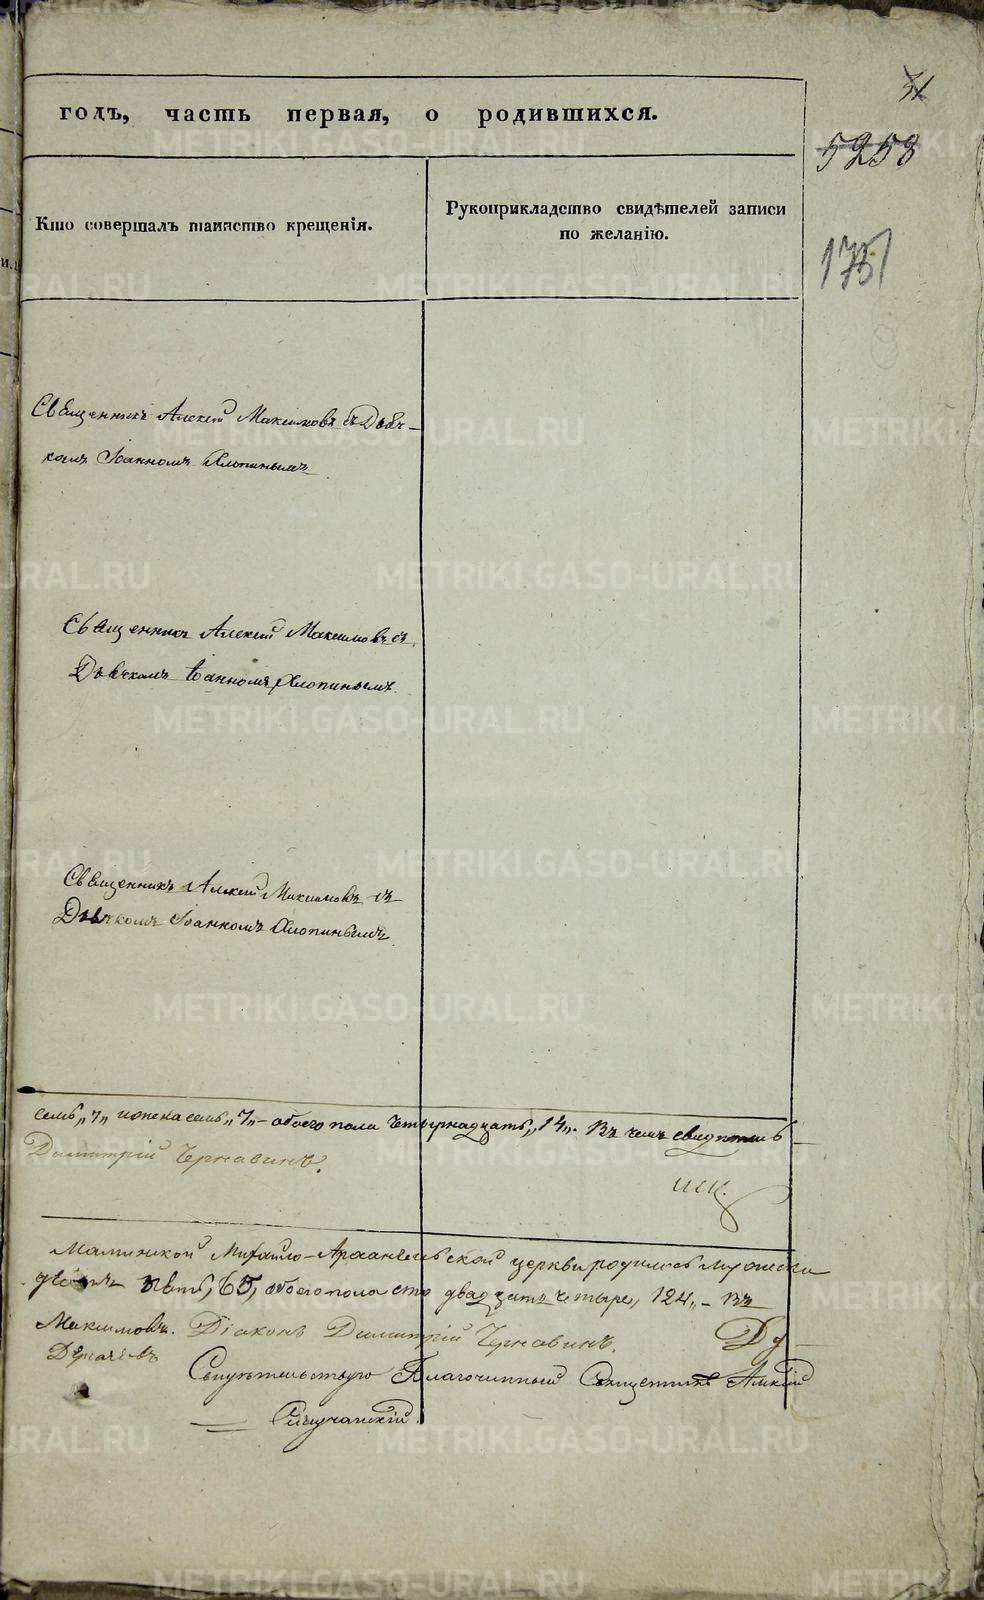 годъ, часть первая, о родившихся.
31
5253
175
Кто совершалъ таинство крещенія.
Рукоприкладство свидѣтелей записи
по желанію.
Священникъ Алексій Максимовъ съ Дьяч-
комъ Іоанномъ Хлопинымъ
Священникъ Алексій Максимовъ съ
Дьячкомъ Іоанномъ Хлопинымъ
Священникъ Алексій Максимовъ съ
Дьячкомъ Іоанномъ Хлопинымъ
семь „7„ и женска семь „7„ – обоего пола четырнадцать „14„. Въ чемъ свидѣтель-
Димитрій Чернавинъ.
Михайло-Архангельской церкви родилось мужеска
пять, 65, обоего пола сто двадцать четыре, 124, – Въ
Максимовъ. Діаконъ Димитрій Чернавинъ. Ду-
Свидѣтельствую Благочинный Священникъ Алексій
METRIKI.GASO-URAL.RU